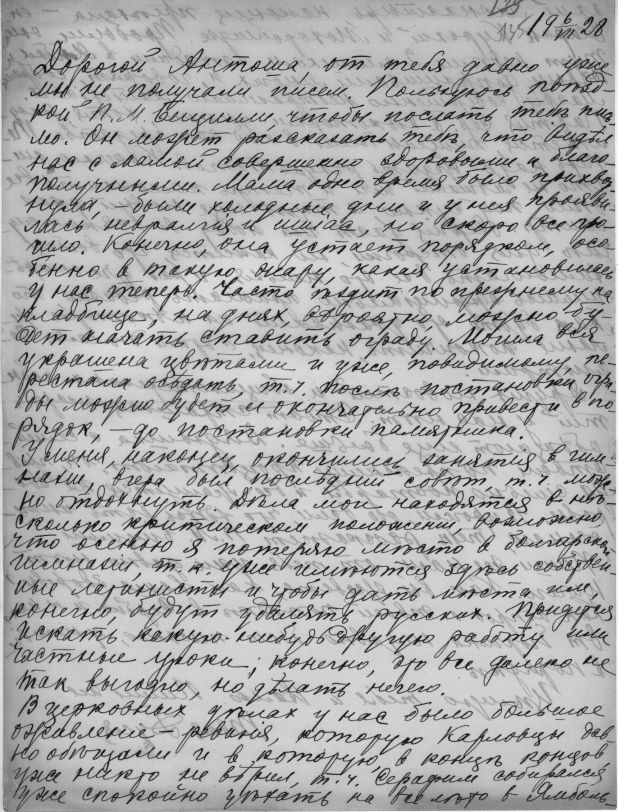 19 6/VII 28
Дорогой Антоша, от тебя давно уже
мы не получали писем. Пользуюсь поезд-
кой П. М. Бицилли, чтобы послать тебѣ пись-
мо. Он может разсказать тебѣ, что видѣл
нас с мамой совершенно здоровыми и благо-
получными. Мама одно время было прихвор-
нула, – были холодные дни и у нея прояви-
лась невралгия и ишиас, но скоро все про-
шло. Конечно, она устает порядком, осо-
бенно в такую жару, какая установилась
у нас теперь. Часто ѣздит по прежнему на
кладбище, на днях, вѣроятно, можно бу-
дет начать ставить ограду. Могила вся
украшена цвѣтами и уже, повидимому, пе-
рестала осѣдать, т. ч. послѣ постановки огра-
ды можно будет и окончательно привести в по-
рядок, – до постановки памятника.
У меня, наконец, окончились занятия в гим-
назии, вчера был послѣдний совѣт, т. ч. мож-
но отдохнуть. Дѣла мои находятся в нѣ-
сколько критическом положении, возможно,
что осенью я потеряю мѣсто в болгарской
гимназии, т. к. уже имѣются здѣсь собствен-
ные латинисты и чтобы дать мѣста им,
конечно, будут удалять русских. Придется
искать какую-нибудь другую работу или
частные уроки; конечно, это все далеко не
так выгодно, но дѣлать нечего.
В церковных дѣлах у нас было большое
оживление – ревизия, которую Карловцы дав-
но обѣщали и в которую в концѣ концов
уже никто не вѣрил, т. ч. Серафим собирался
уже спокойно уѣхать на все лѣто в Ямболь-